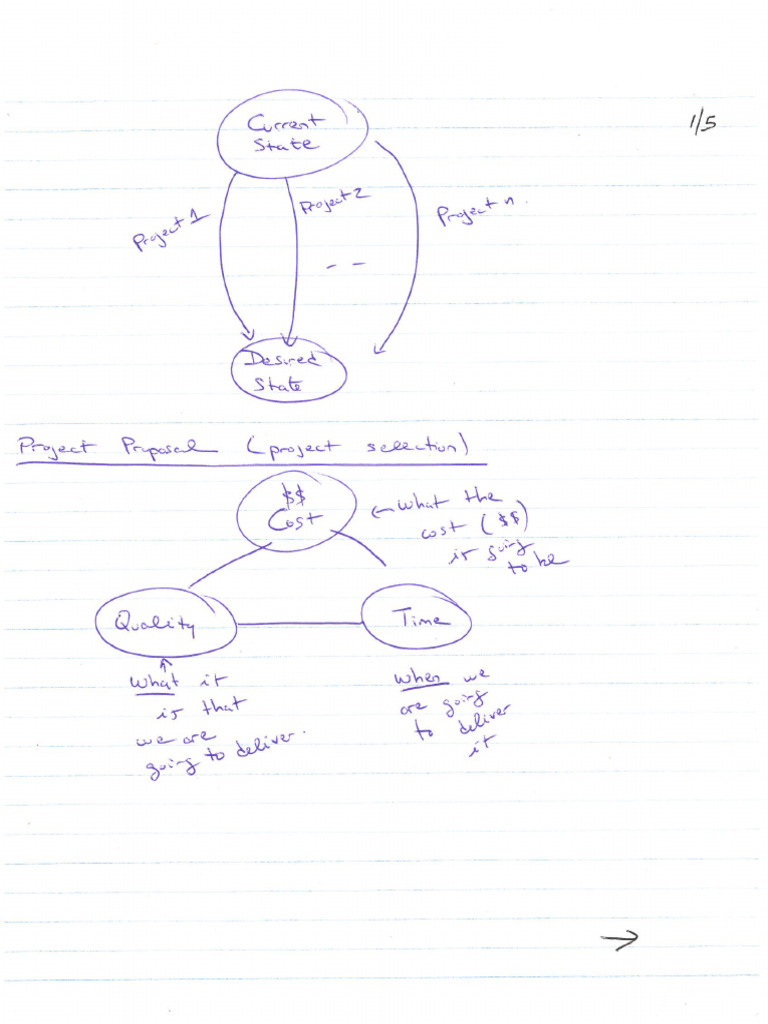 1/5
Current
State
Project 1
Project 2
Project n.
Desired
State
Project Proposal (project selection)
$$
Cost
← What the
cost ($$)
is going
to be
Quality
Time
What it
is that
we are
going to deliver.
When we
are going
to deliver
it